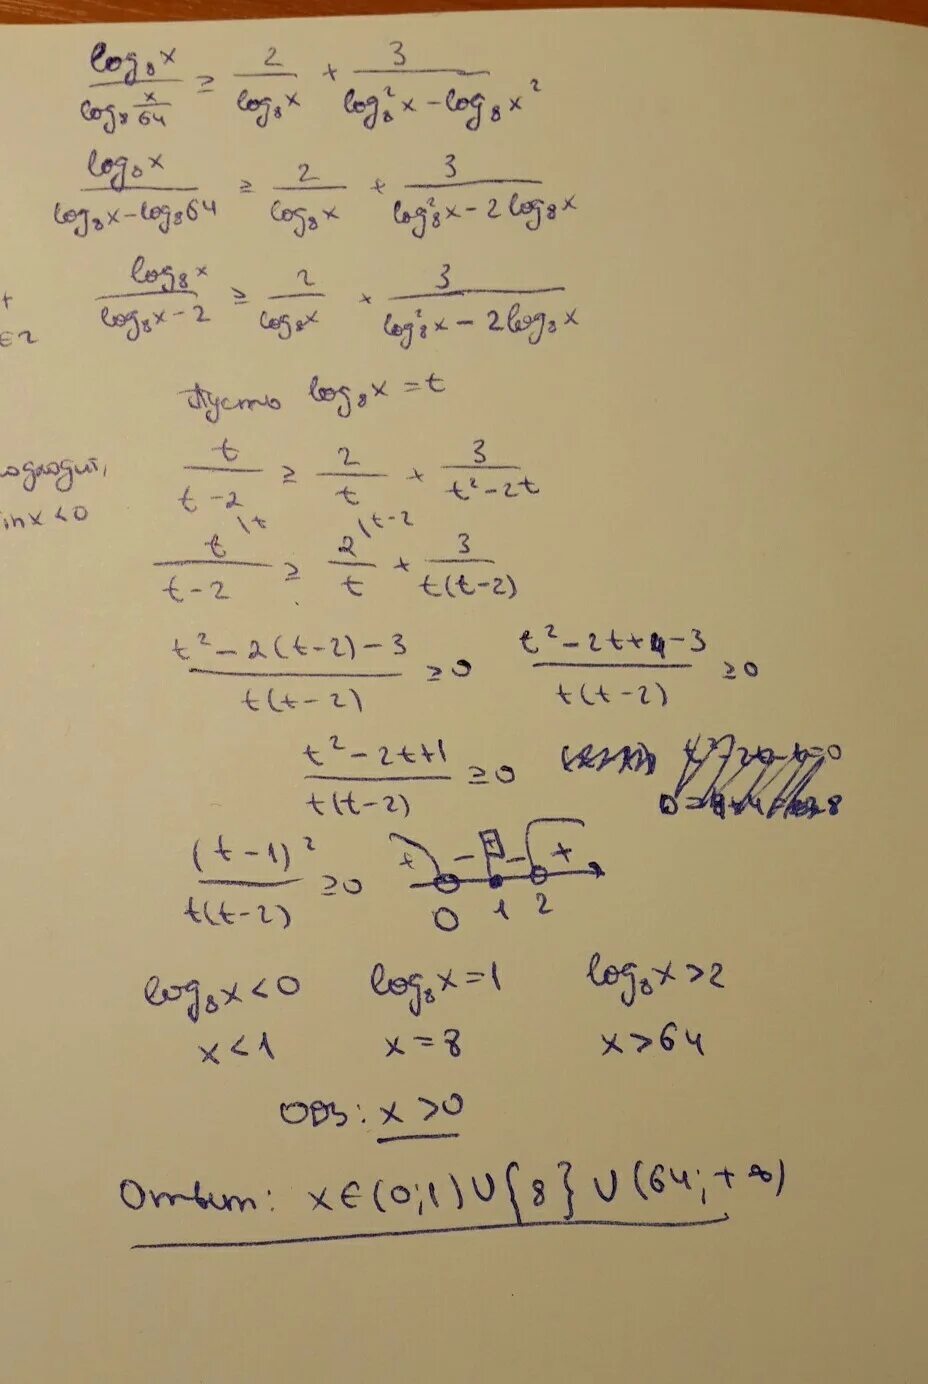 log₈x / log₈(x/64) ≥ 2/log₈x + 3/(log₈²x - log₈x²)
log₈x / (log₈x - log₈64) ≥ 2/log₈x + 3/(log₈²x - 2log₈x)
+ log₈x / (log₈x - 2) ≥ 2/log₈x + 3/(log₈²x - 2log₈x)
∈ Z
Пусть log₈x = t
t/(t-2) ≥ 2/t + 3/(t²-2t)
одходит,
inx<0
t\t/(t-2) ≥ 2\t-2/t + 3/(t(t-2))
(t²-2(t-2)-3)/(t(t-2)) ≥ 0 (t²-2t+4-3)/(t(t-2)) ≥ 0
(t²-2t+1)/(t(t-2)) ≥ 0
(t-1)²/(t(t-2)) ≥ 0 + - + - +
0 1 2
log₈x<0 log₈x=1 log₈x>2
x<1 x=8 x>64
ОДЗ: x>0
Ответ: x∈(0;1)∪{8}∪(64;+∞)